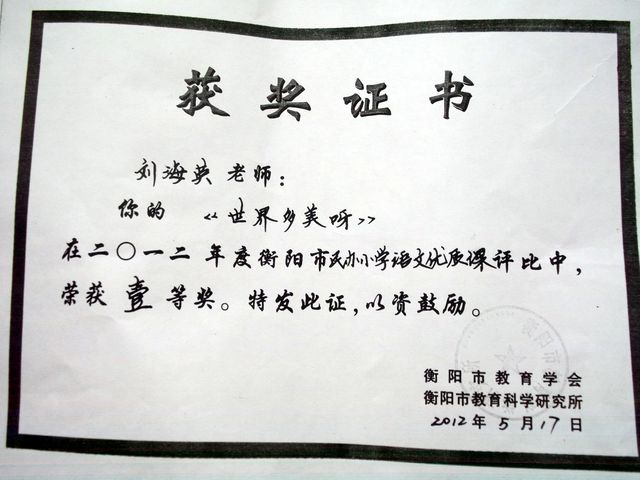 获奖证书
刘海英 老师：
你的 《世界多美呀》
在二〇一二年度衡阳市民办小学语文优质课评比中，
荣获 壹 等奖。特发此证，以资鼓励。
衡阳市教育学会
衡阳市教育科学研究所
2012年5月17日